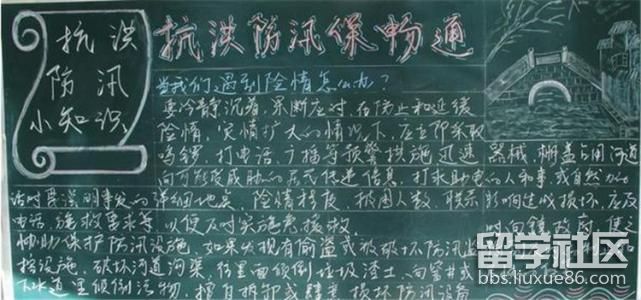 抗洪
防汛
小知识
抗洪防汛保畅通
当我们遇到险情怎么办?
要冷静沉着,果断应对,在防止和延缓
险情,灾情扩大的情况下,应立即采取
鸣锣,打电话,广播等预警措施,迅速
向可能受威胁的居民传递信息,打求助电
话时要说明事发的详细地点,险情程度,被困人数,联系
电话,施救要求等,以便及时实施
协助保护防汛设施,如果发现有偷盗或被破坏防汛监
控设施,破坏河道沟渠,往里面倾倒垃圾渣土,向窨井或
下水道里倾倒污物,擅自拆卸或肆意损坏防汛设备
器械,
占用河道
的人和事,或自然
影响
留学社区
bbs.liuxue86.com